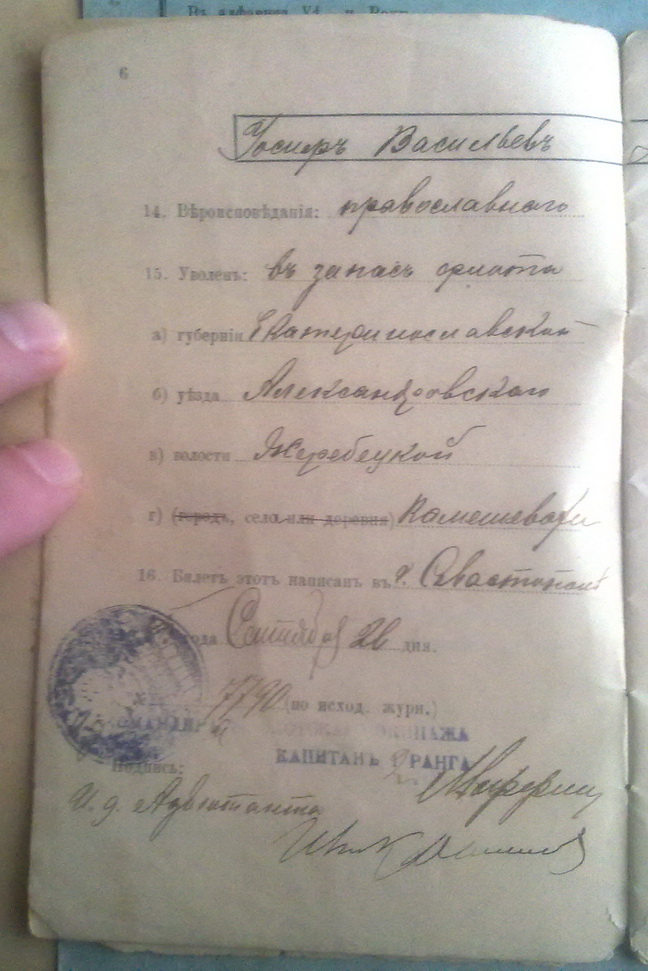 6
Васильевъ
14. Вѣроисповѣданія: православнаго
15. Уволенъ: въ запасъ флота
а) губерніи Екатеринославской
б) уѣзда Александровскаго
в) волости Жеребецкой
г) (городъ, село или деревня)
16. Билетъ этотъ написанъ въ г. Севастополѣ
года Сентября 26 дня.
№ 7790 (по исход. журн.)
КОМАНДИРЪ ФЛОТСКАГО ЭКИПАЖА
КАПИТАНЪ 2 РАНГА
Подпись:
И. д. Адъютанта